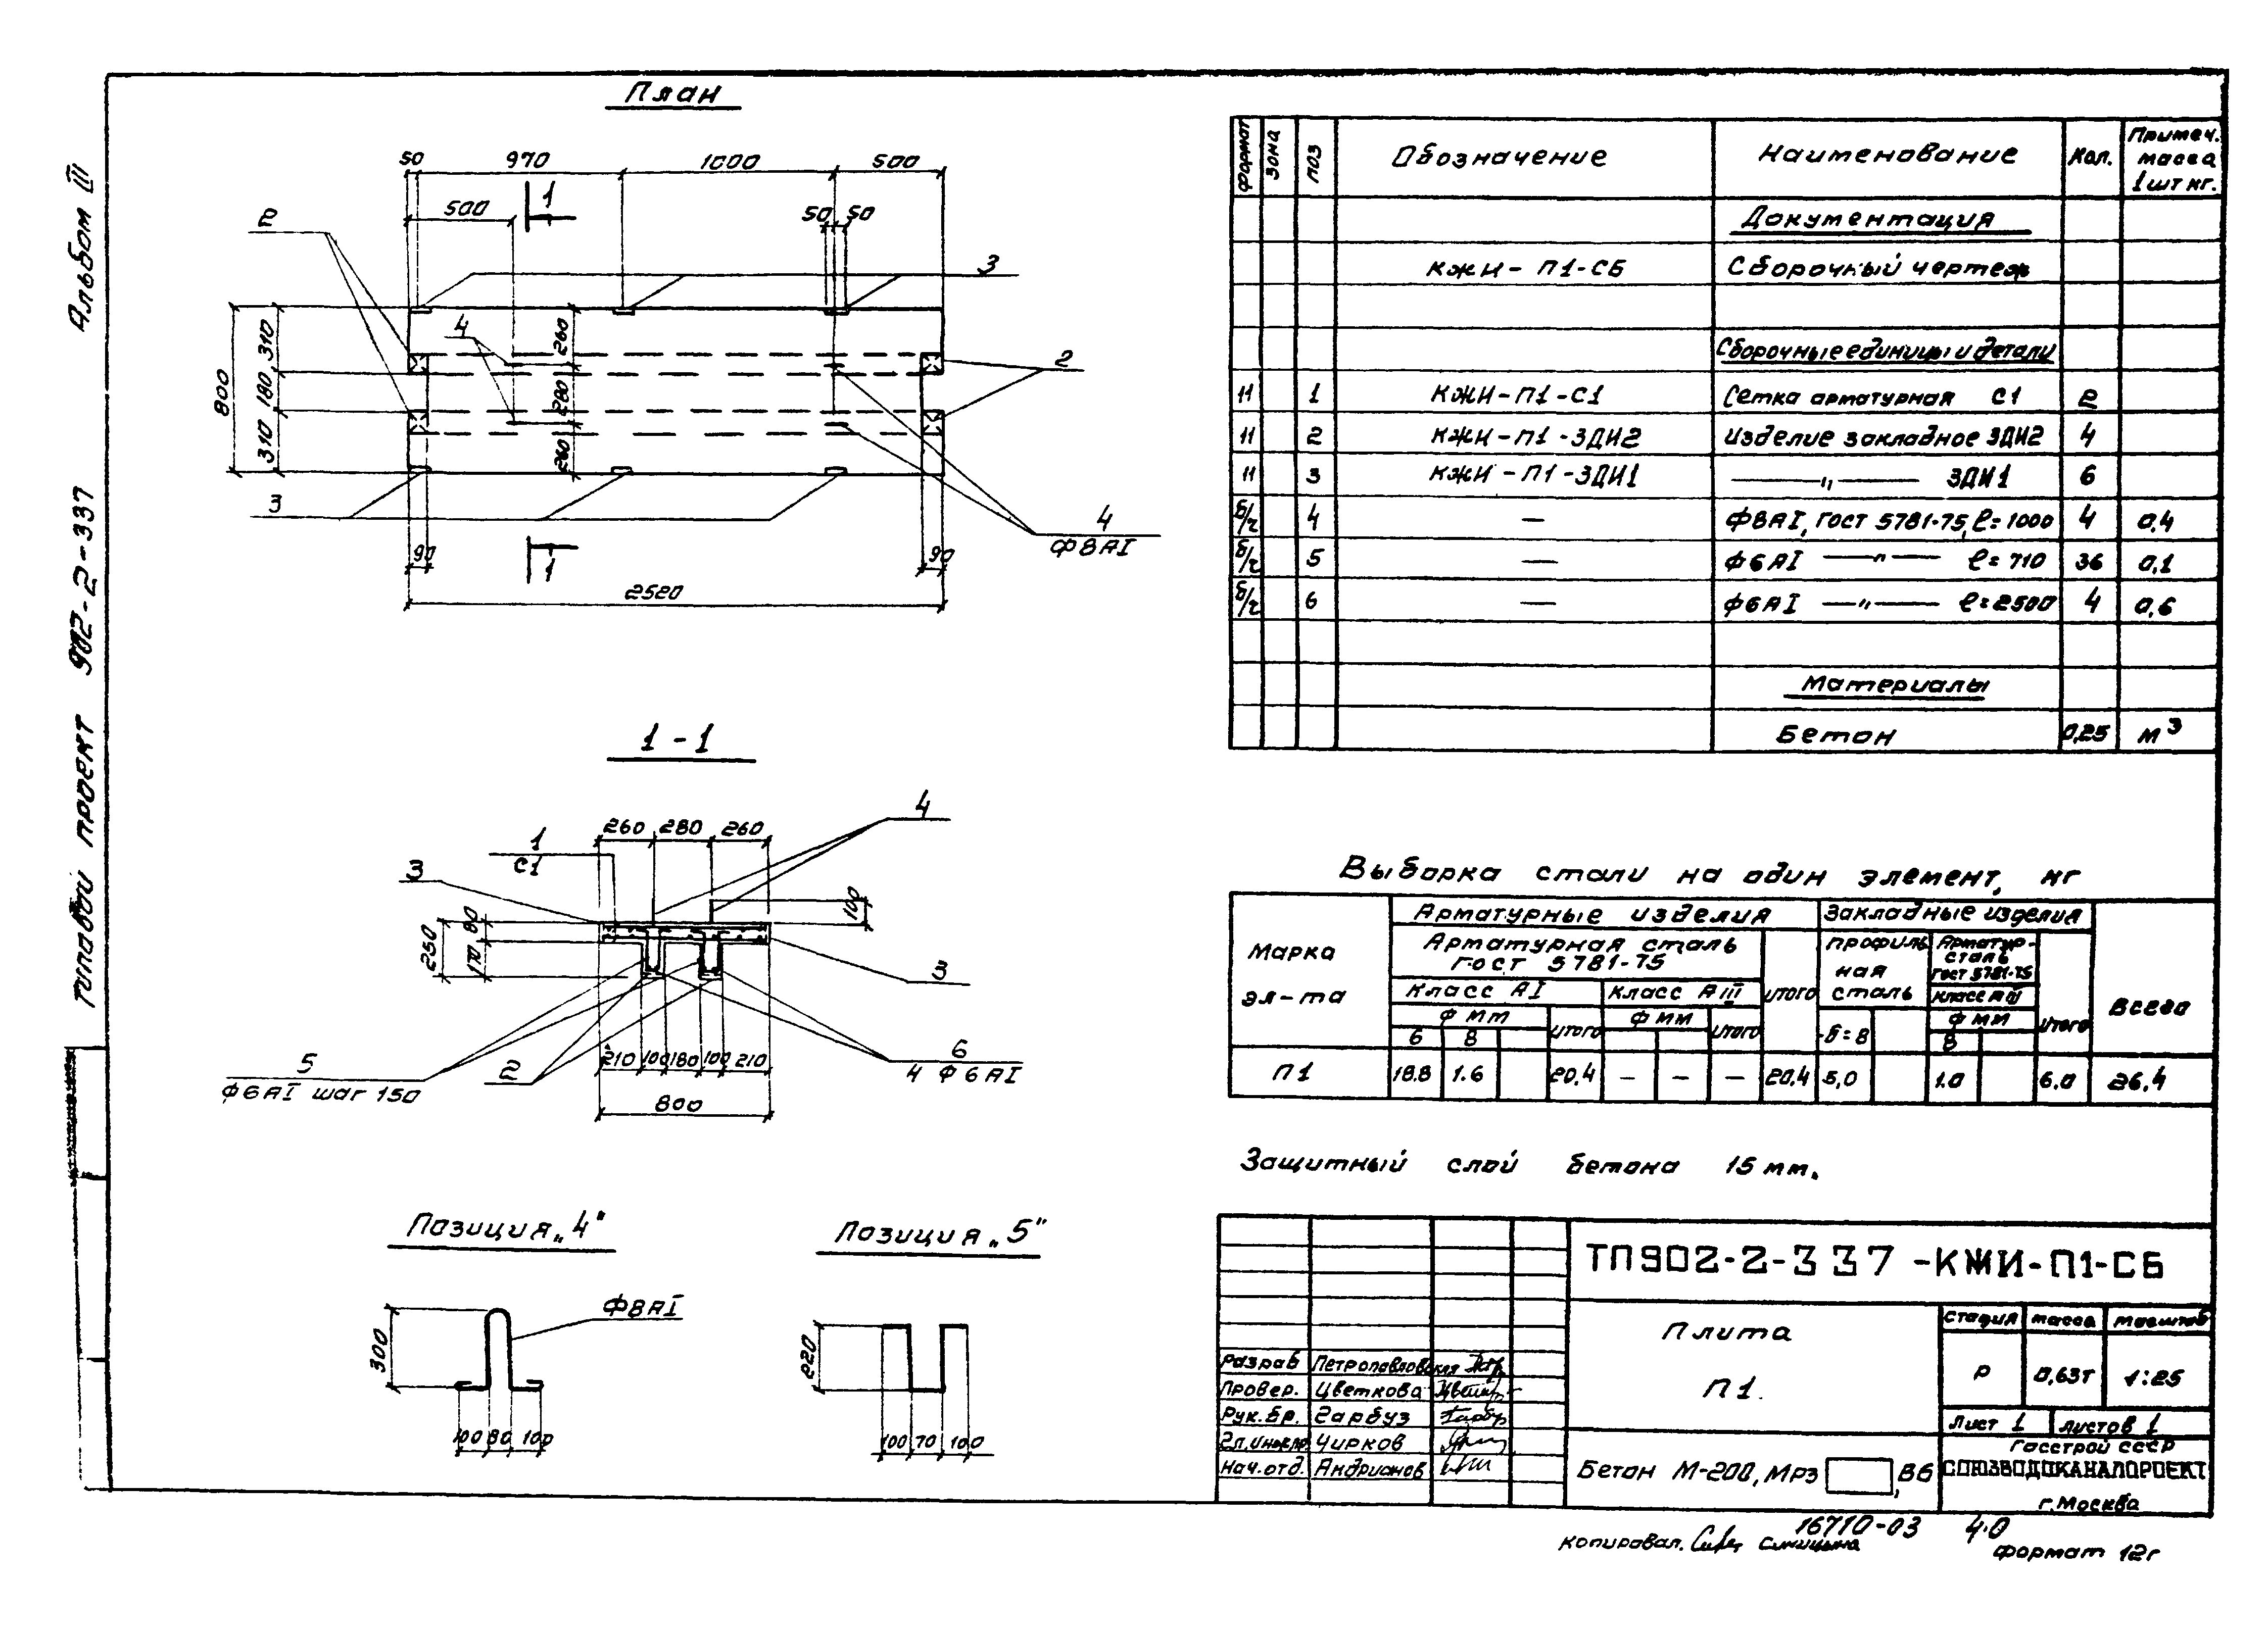 Альбом III
Типовой проект 902-2-337
План
50 970 1000 500
500
1
50 50
2
3
4
800
310 180 310
260 280 260
2
3
4
Ф8АI
90
1
90
2520
1-1
4
260 280 260
1
С1
3
100
250
80
170
3
210 100 180 100 210
800
5
Ф6АI шаг 150
2
6
4 Ф6АI
Позиция „4"
Ф8АI
300
100 80 100
Позиция „5"
220
100 70 100
Формат Зона Поз Обозначение Наименование Кол. Примеч. масса 1шт кг.
Документация
КЖИ-П1-СБ Сборочный чертеж
Сборочные единицы и детали
11 1 КЖИ-П1-С1 Сетка арматурная С1 2
11 2 КЖИ-П1-ЗДИ2 Изделие закладное ЗДИ2 4
11 3 КЖИ-П1-ЗДИ1 —„— ЗДИ1 6
б/ч 4 — Ф8АI, ГОСТ 5781-75, ℓ=1000 4 0,4
б/ч 5 — Ф6АI —„— ℓ=710 36 0,1
б/ч 6 — Ф6АI —„— ℓ=2500 4 0,6
Материалы
Бетон 0,25 м³
Выборка стали на один элемент, кг
Марка эл-та
Арматурные изделия
Закладные изделия
Всего
Арматурная сталь ГОСТ 5781-75
Итого
Профильная сталь
Арматур. сталь ГОСТ 5781-75
Итого
Класс АI
Класс АIII
Класс АIII
Ф мм
Итого
Ф мм
Итого
-δ=8
Ф мм
6 8
8
П1 18.8 1.6 20,4 – – – 20,4 5,0 1.0 6.0 26,4
Защитный слой бетона 15 мм.
ТП902-2-337-КЖИ-П1-СБ
Плита
П1.
Стадия Масса Масштаб
Р 0,63т 1:25
Лист 1 Листов 1
Бетон М-200, Мрз , В6
Госстрой СССР
СОЮЗВОДОКАНАЛПРОЕКТ
г.Москва
Разраб Петропавловская
Провер. Цветкова
Рук.бр. Гарбуз
Гл.инж.пр. Чирков
Нач.отд. Андрианов
16710-03 40
Копировал. Синицына
Формат 12г